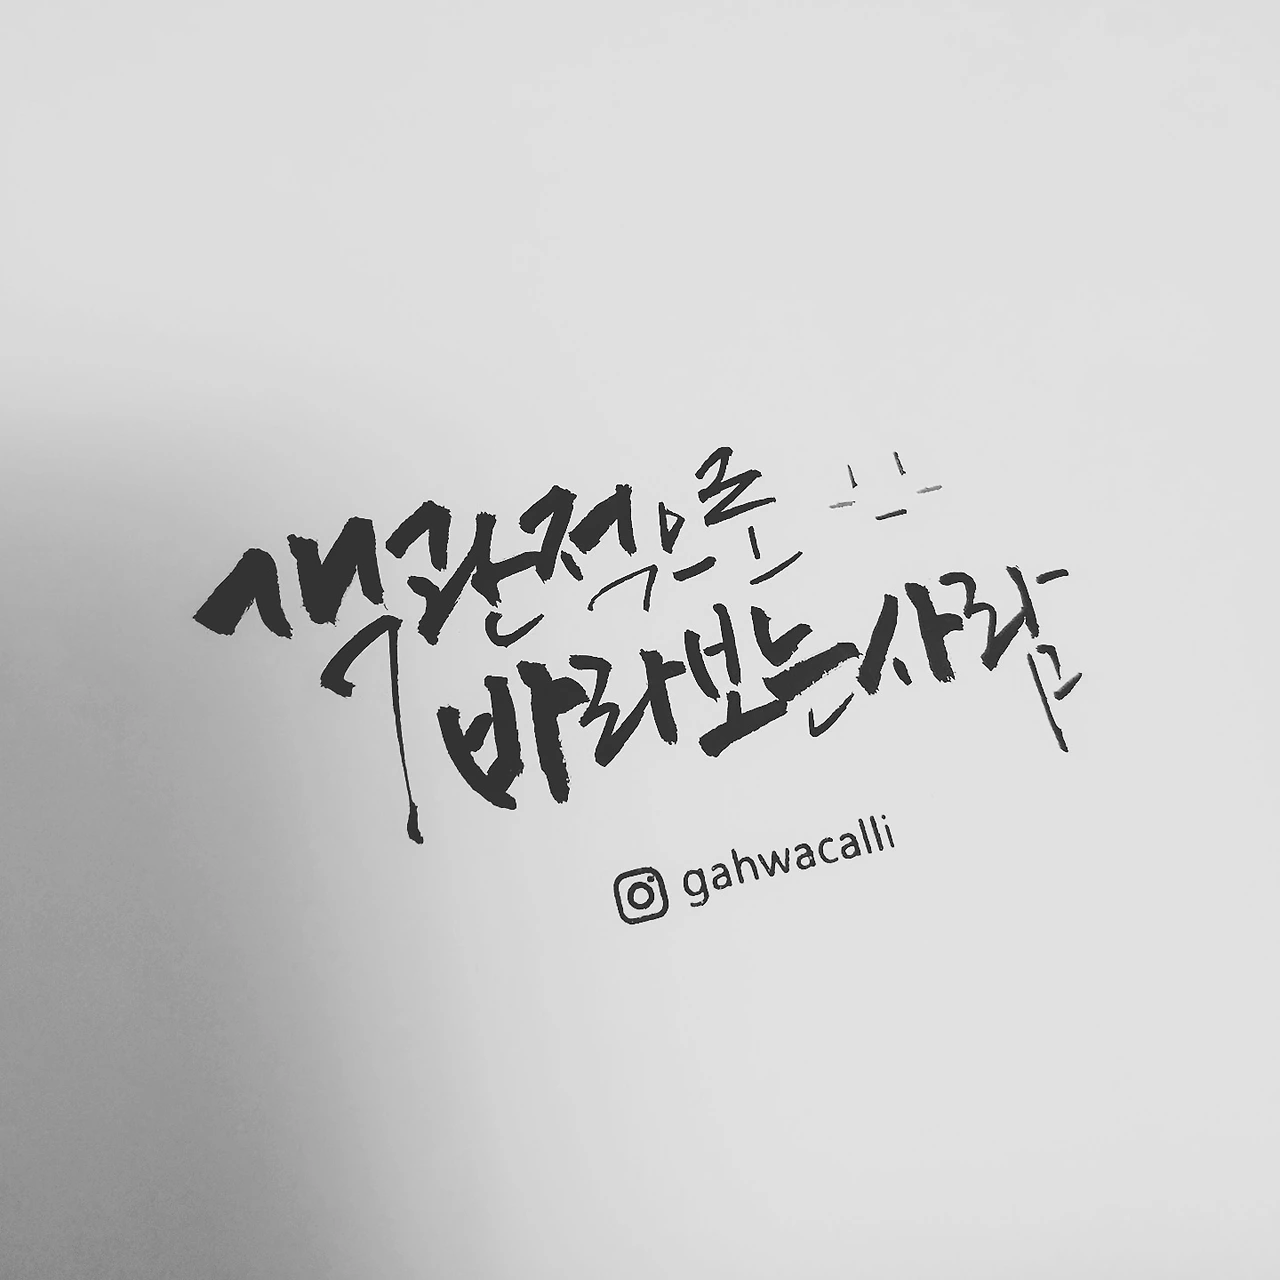 객관적으로
바라보는 사람
gahwacalli